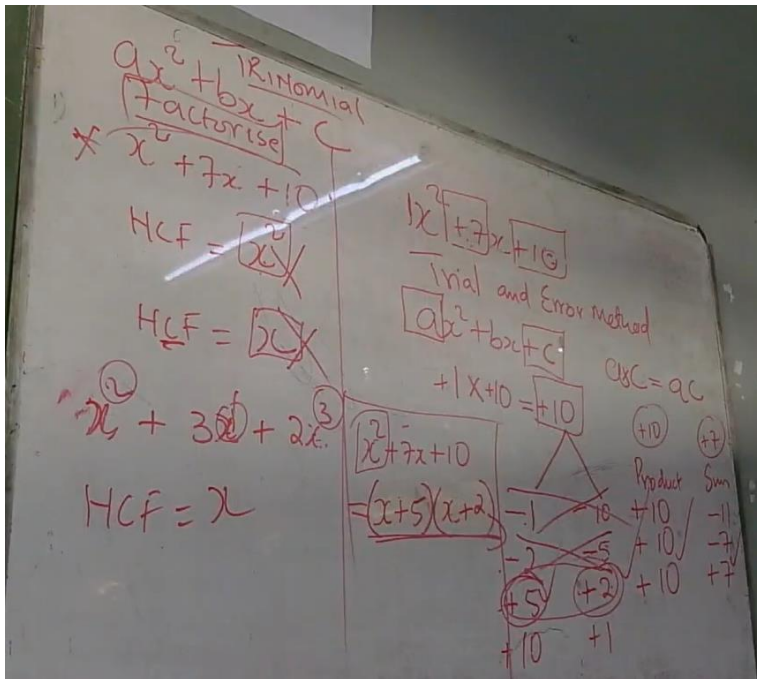 TRINOMIAL
ax² + bx + c
Factorise
x² + 7x + 10
HCF = x²
HCF = x
x² + 3x + 2x³
HCF = x
1x² + 7x + 10
Trial and Error Method
ax² + bx + c
a x c = ac
+1 x +10 = +10
x² + 7x + 10
= (x+5)(x+2)
+10 +7
Product Sum
-1 -10 +10 -11
-2 -5 +10 -7
+5 +2 +10 +7
+10 +1